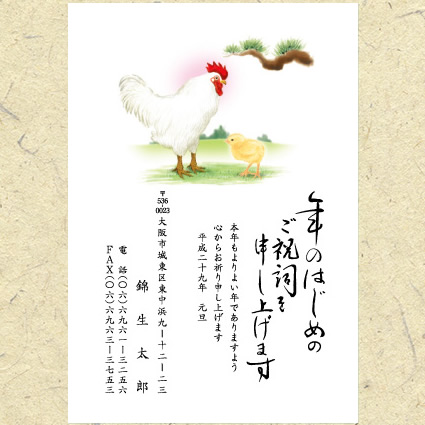 年のはじめの
ご祝詞を
申し上げます
本年もよりよい年でありますよう
心からお祈り申し上げます
平成二十九年 元旦
〒536-0023
大阪市城東区東中浜九ー十二ー二三
錦生太郎
電話(〇六)六九六一ー三二五六
FAX(〇六)六九六三ー三七五三